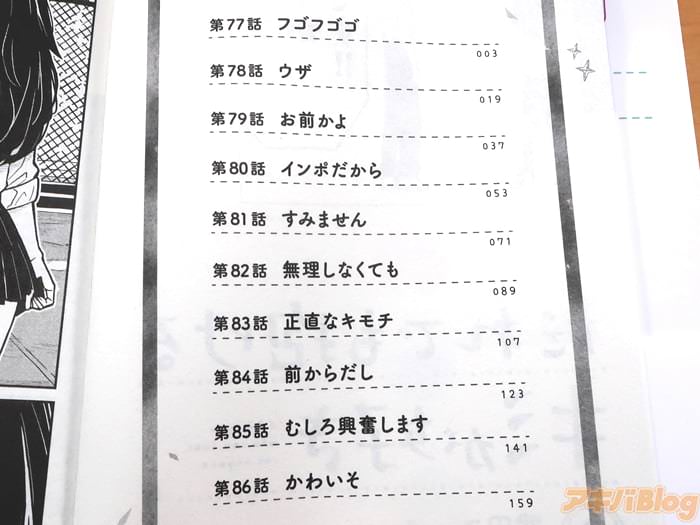 第77話 フゴフゴゴ
003
第78話 ウザ
019
第79話 お前かよ
037
第80話 インポだから
053
第81話 すみません
071
第82話 無理しなくても
089
第83話 正直なキモチ
107
第84話 前からだし
123
第85話 むしろ興奮します
141
第86話 かわいそ
159
アキバBlog